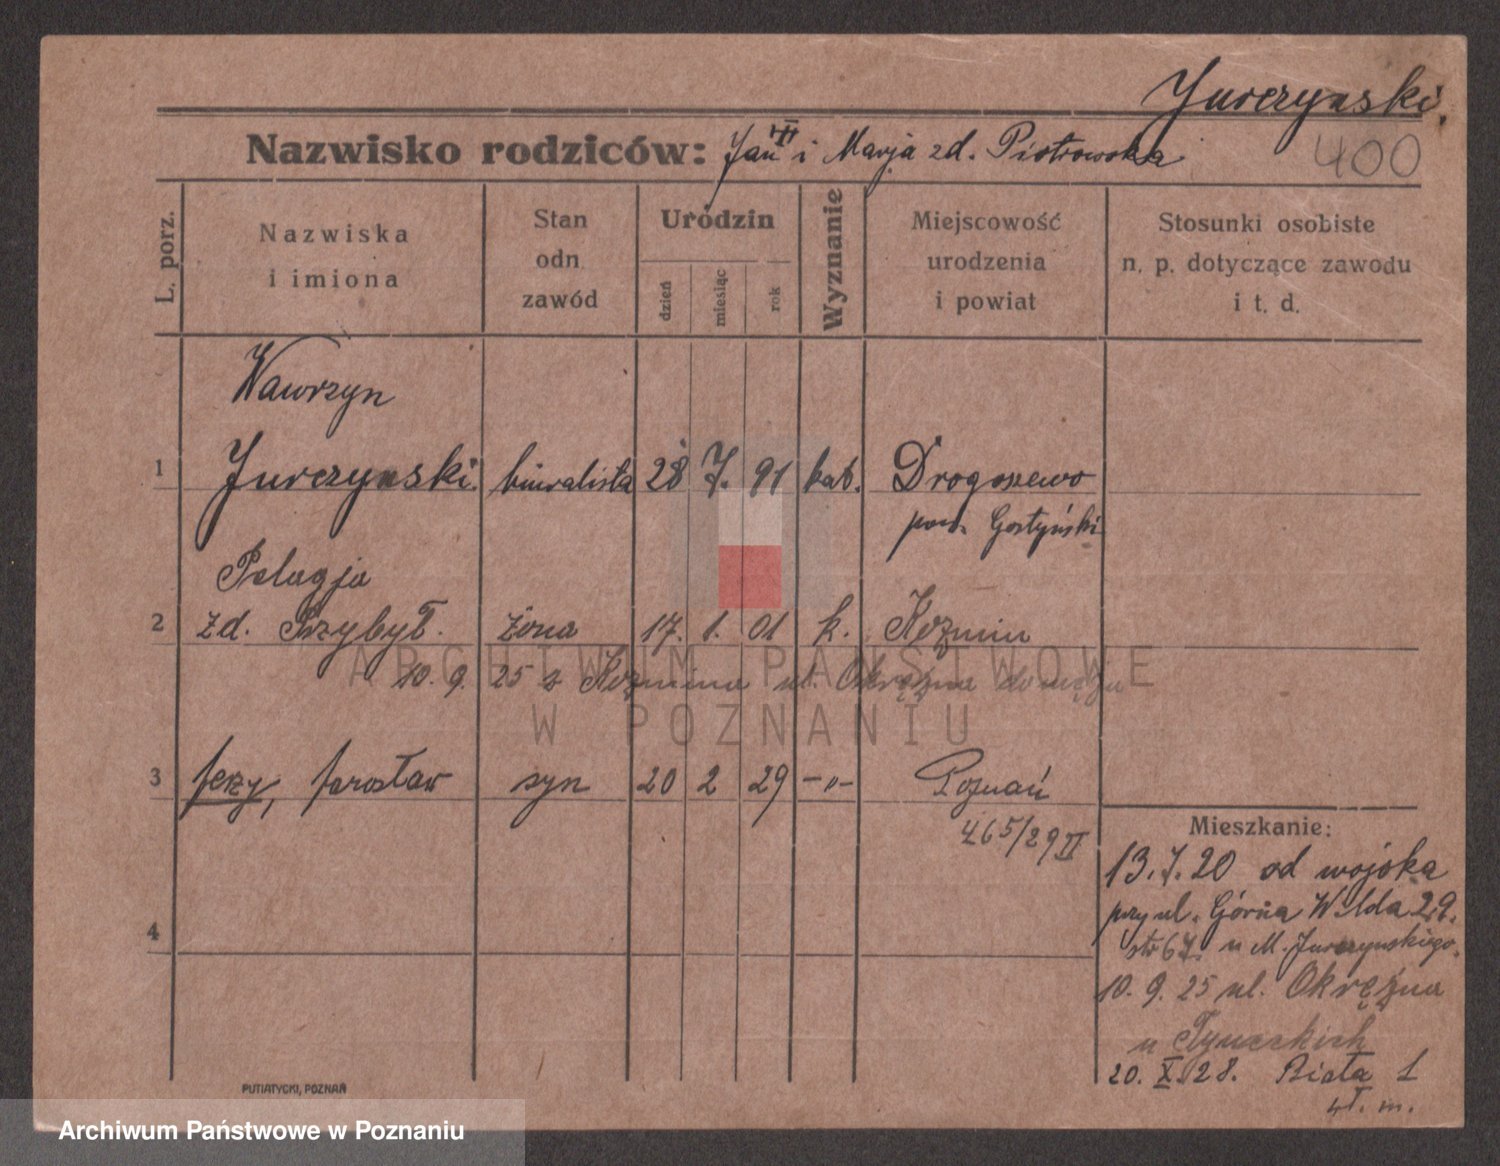 Jurczynski.
400
Nazwisko rodziców: Jan i Marja zd. Piotrowska
L. porz.
Nazwiska
i imiona
Stan
odn
zawód
Urodzin
dzień
miesiąc
rok
Wyznanie
Miejscowość
urodzenia
i powiat
Stosunki osobiste
n. p. dotyczące zawodu
i t. d.
Wawrzyn
1 Jurczynski. biuralista 28 7. 91 kat. Drogoszewo
pow. Gostyński
Pelagja
2 zd. Przybył. żona 17. 1. 01 k. Kozmin
10. 9. 25 z Kozmina ul. Okrężna do męża
3 Jerzy, Jarosław syn 20 2 29 -"- Poznań
465/29 II
4
Mieszkanie:
13.7.20 od wojska
przy ul. Górna Wilda 29.
str 67. u M. Jurczynskiego.
10. 9. 25 ul. Okrężna
u
20. X. 28. Biała 1
m.
PUTIATYCKI, POZNAŃ
ARCHIWUM PAŃSTWOWE
W POZNANIU
Archiwum Państwowe w Poznaniu